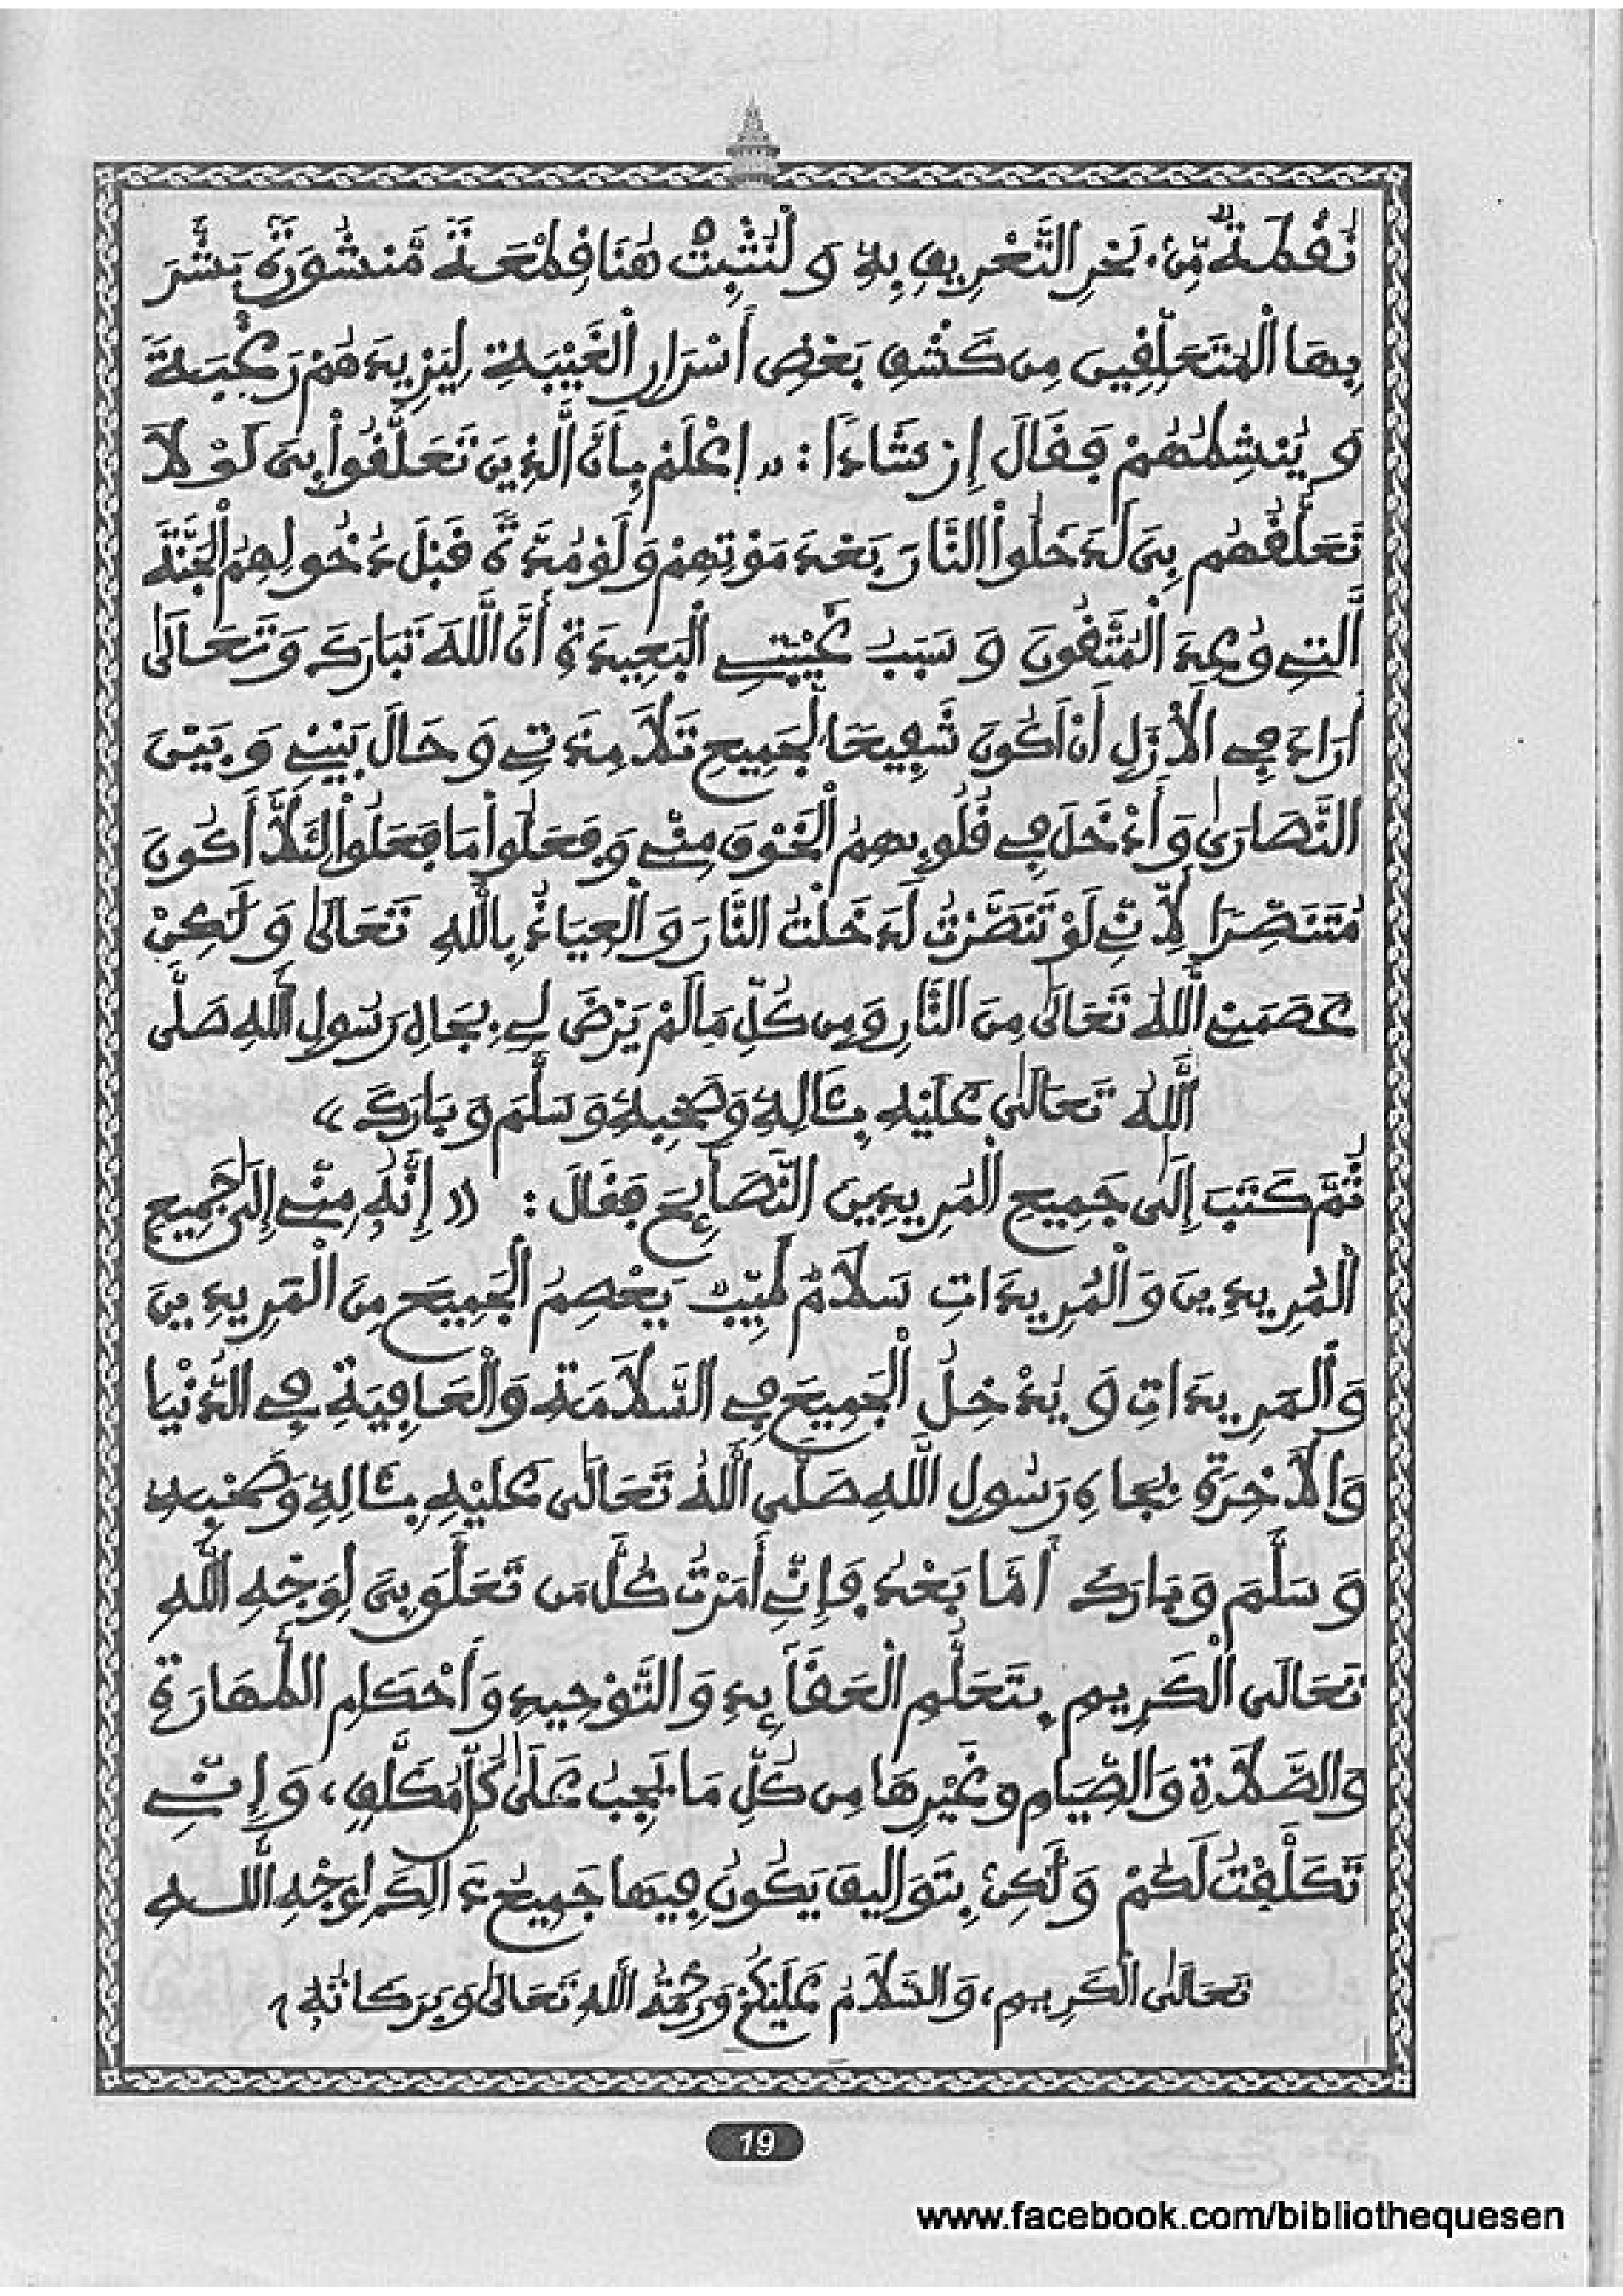 نُقْطَةٌ مِّن بَحْرِ التَّعْرِيفِ بِهِ وَلْنُثْبِتْ هُنَا قِطْعَةً مَّنشُورَةً بَشَّرَ
بِهَا الْمُتَعَلِّقِينَ مِن كَشْفِ بَعْضِ أَسْرَارِ الْغَيْبَةِ لِيَزِيدَهُمْ رَغْبَةً
وَيُنشِطُهُمْ فَقَالَ إِرْشَادًا : „ اِعْلَمْ بِأَنَّ الَّذِينَ تَعَلَّقُوا بِيَ لَوْلَا
تَعَلُّقُهُم بِيَ لَدَخَلُوا النَّارَ بَعْدَ مَوْتِهِمْ وَلَوْ مُدَّةً قَبْلَ دُخُولِهِمُ الْجَنَّةَ
الَّتِي وُعِدَ الْمُتَّقُونَ وَسَبَبُ غَيْبَتِي الْبَعِيدَةِ أَنَّ اللَّهَ تَبَارَكَ وَتَعَالَى
أَرَادَ فِي الْأَزَلِ أَنْ أَكُونَ شَفِيعًا لِجَمِيعِ تَلَامِذَتِي وَحَالَ بَيْنِي وَبَيْنَ
النَّصَارَى وَأَدْخَلَ فِي قُلُوبِهِمُ الْخَوْفَ مِنِّي وَفَعَلُوا مَا فَعَلُوا لِئَلَّا أَكُونَ
مُتَنَصِّرًا لِأَنِّي لَوْ تَنَصَّرْتُ لَدَخَلْتُ النَّارَ وَالْعِيَاذُ بِاللَّهِ تَعَالَى وَلَكِنْ
عَصَمَنِي اللَّهُ تَعَالَى مِنَ النَّارِ وَمِن كُلِّ مَا لَمْ يَرْضَ لِي بِجَاهِ رَسُولِ اللَّهِ صَلَّى
اللَّهُ تَعَالَى عَلَيْهِ بِئَالِهِ وَصَحْبِهِ وَسَلَّمَ وَبَارَكَ »
ثُمَّ كَتَبَ إِلَى جَمِيعِ الْمُرِيدِينَ النَّصَائِحَ فَقَالَ : (( إِنَّهُ مِنِّي إِلَى جَمِيعِ
الْمُرِيدِينَ وَالْمُرِيدَاتِ سَلَامٌ طَيِّبٌ يَعْصِمُ الْجَمِيعَ مِنَ الْمَرِيدِينَ
وَالْمَرِيدَاتِ وَيُدْخِلُ الْجَمِيعَ فِي السَّلَامَةِ وَالْعَافِيَةِ فِي الدُّنْيَا
وَالْآخِرَةِ بِجَاهِ رَسُولِ اللَّهِ صَلَّى اللَّهُ تَعَالَى عَلَيْهِ بِئَالِهِ وَصَحْبِهِ
وَسَلَّمَ وَبَارَكَ أَمَّا بَعْدُ فَإِنِّي أَمَرْتُ كُلَّ مَن تَعَلَّقَ بِيَ لِوَجْهِ اللَّهِ
تَعَالَى الْكَرِيمِ بِتَعَلُّمِ الْعَقَائِدِ وَالتَّوْحِيدِ وَأَحْكَامِ الطَّهَارَةِ
وَالصَّلَاةِ وَالصِّيَامِ وَغَيْرِهَا مِن كُلِّ مَا يَجِبُ عَلَى كُلِّ مُكَلَّفٍ، وَإِنِّي
تَكَلَّفْتُ لَكُمْ وَلَكِنْ بِتَوَالِيفَ يَكُونُ فِيهَا جَمِيعُ ذَالِكَ لِوَجْهِ اللَّهِ
تَعَالَى الْكَرِيمِ، وَالسَّلَامُ عَلَيْكُمْ وَرَحْمَةُ اللَّهِ تَعَالَى وَبَرَكَاتُهُ ،
19
www.facebook.com/bibliothequesen